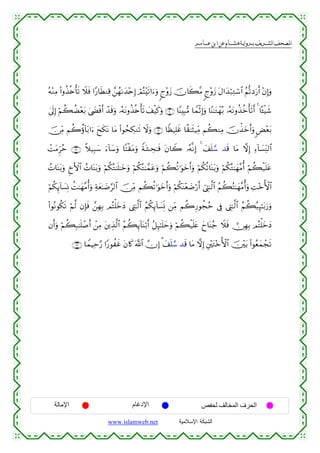 المصحف الشريف برواية هشام عن ابن عامر
وَإِنْ أَرَدتُّمُ ٱسْتِبْدَالَ زَوْجٍ مَّكَانَ زَوْجٍ وَءَاتَيْتُمْ إِحْدَىٰهُنَّ قِنطَارًا فَلَا تَأْخُذُوا۟ مِنْهُ
شَيْـًٔا أَتَأْخُذُونَهُۥ بُهْتَٰنًا وَإِثْمًا مُّبِينًا وَكَيْفَ تَأْخُذُونَهُۥ وَقَدْ أَفْضَىٰ بَعْضُكُمْ إِلَىٰ
بَعْضٍ وَأَخَذْنَ مِنكُم مِّيثَٰقًا غَلِيظًا وَلَا تَنكِحُوا۟ مَا نَكَحَ ءَابَآؤُكُم مِّنَ
ٱلنِّسَآءِ إِلَّا مَا قَدْ سَلَفَ إِنَّهُۥ كَانَ فَٰحِشَةً وَمَقْتًا وَسَآءَ سَبِيلًا حُرِّمَتْ
عَلَيْكُمْ أُمَّهَٰتُكُمْ وَبَنَاتُكُمْ وَأَخَوَٰتُكُمْ وَعَمَّٰتُكُمْ وَخَٰلَٰتُكُمْ وَبَنَاتُ ٱلْأَخِ وَبَنَاتُ
ٱلْأُخْتِ وَأُمَّهَٰتُكُمُ ٱلَّٰتِىٓ أَرْضَعْنَكُمْ وَأَخَوَٰتُكُم مِّنَ ٱلرَّضَٰعَةِ وَأُمَّهَٰتُ نِسَآئِكُمْ
وَرَبَٰٓئِبُكُمُ ٱلَّٰتِى فِى حُجُورِكُم مِّن نِّسَآئِكُمُ ٱلَّٰتِى دَخَلْتُم بِهِنَّ فَإِن لَّمْ تَكُونُوا۟
دَخَلْتُم بِهِنَّ فَلَا جُنَاحَ عَلَيْكُمْ وَحَلَٰٓئِلُ أَبْنَآئِكُمُ ٱلَّذِينَ مِنْ أَصْلَٰبِكُمْ وَأَن
تَجْمَعُوا۟ بَيْنَ ٱلْأُخْتَيْنِ إِلَّا مَا قَدْ سَلَفَ إِنَّ ٱللَّهَ كَانَ غَفُورًا رَّحِيمًا
الحرف المخالف لحفص الإدغام الإمالة
الشبكة الإسلامية www.islamweb.net